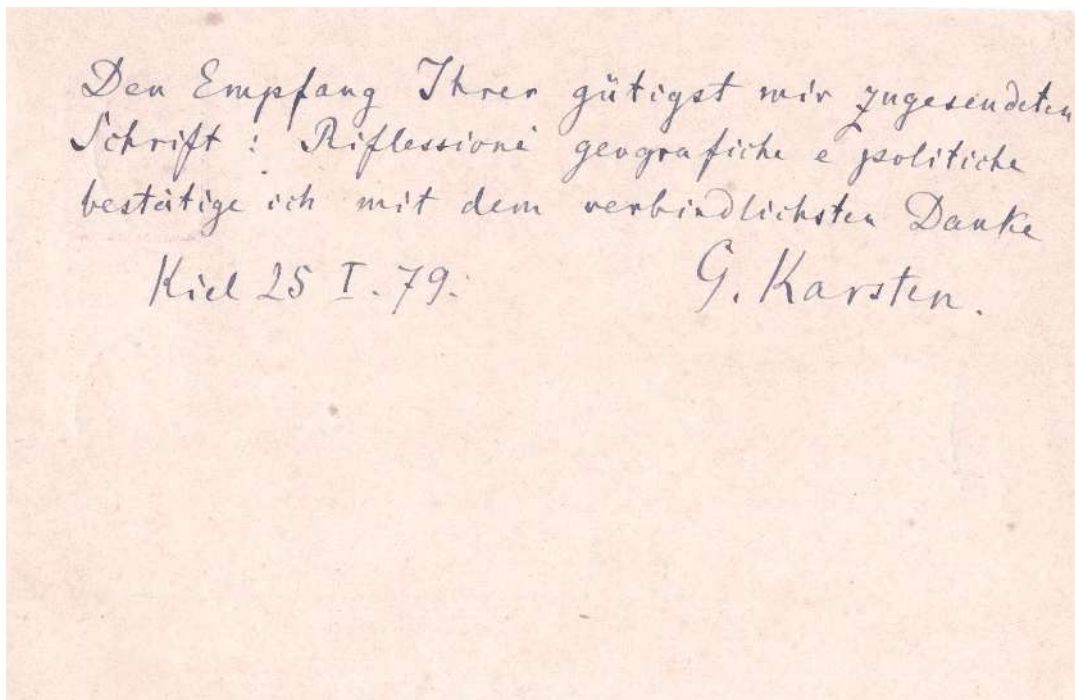 Den Empfang Ihrer gütigst mir zugesendeten
Schrift: Riflessioni geografiche e politiche
bestätige ich mit dem verbindlichsten Danke
Kiel 25 I. 79. G. Karsten.